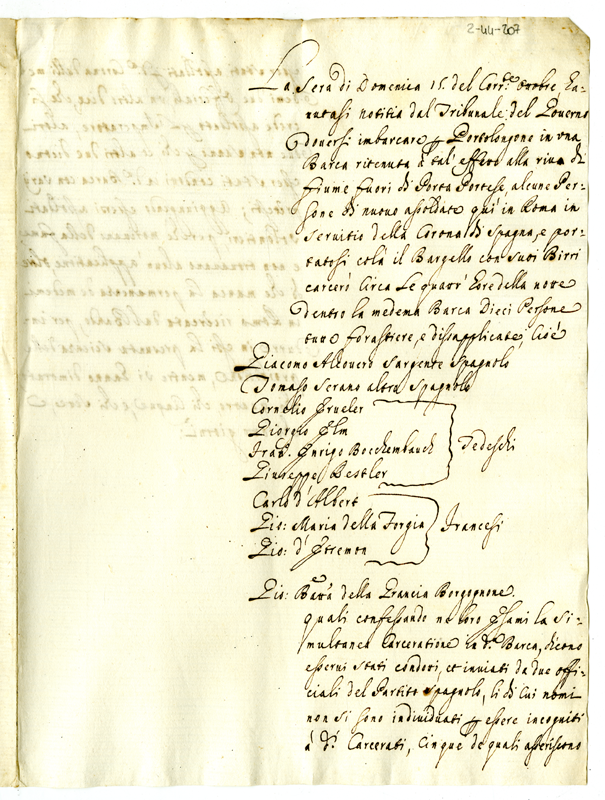 2-44-207
La Sera di Domenica 15. del Corr.te Ottobre, ha-
vutasi notitia dal Tribunale del Governo
doversi imbarcare p Portolongone in una
Barca ritenuta à tal' effetto alla riva di
fiume fuori di Porta Portese, alcune Per-
sone di nuovo assoldate qui in Roma in
servitio della Corona di Spagna, e por-
tatosi colà il Bargello con suoi Birri
carcerò circa le quattr' hore della notte
dentro la medema Barca Dieci Persone
tutte forastiere, e disapplicate, cioè
Giacomo Sargente Spagnolo
Tomaso Serano altro Spagnolo
Cornelio
Giorgio
Enrigo Tedeschi
Giuseppe Bestler
Carlo d'Albert
Gio: Maria della Forgia Francesi
Gio: d'
Gio: Batta della Francia Borgognone.
quali confessando ne loro esami la si-
multanea Carceratione in d.a Barca, dicono
esservi stati condotti, et inviati da due offi-
ciali del Partito Spagnolo, li di cui nomi
non si sono individuati p essere incogniti
à d.i Carcerati, Cinque de quali asseriscono